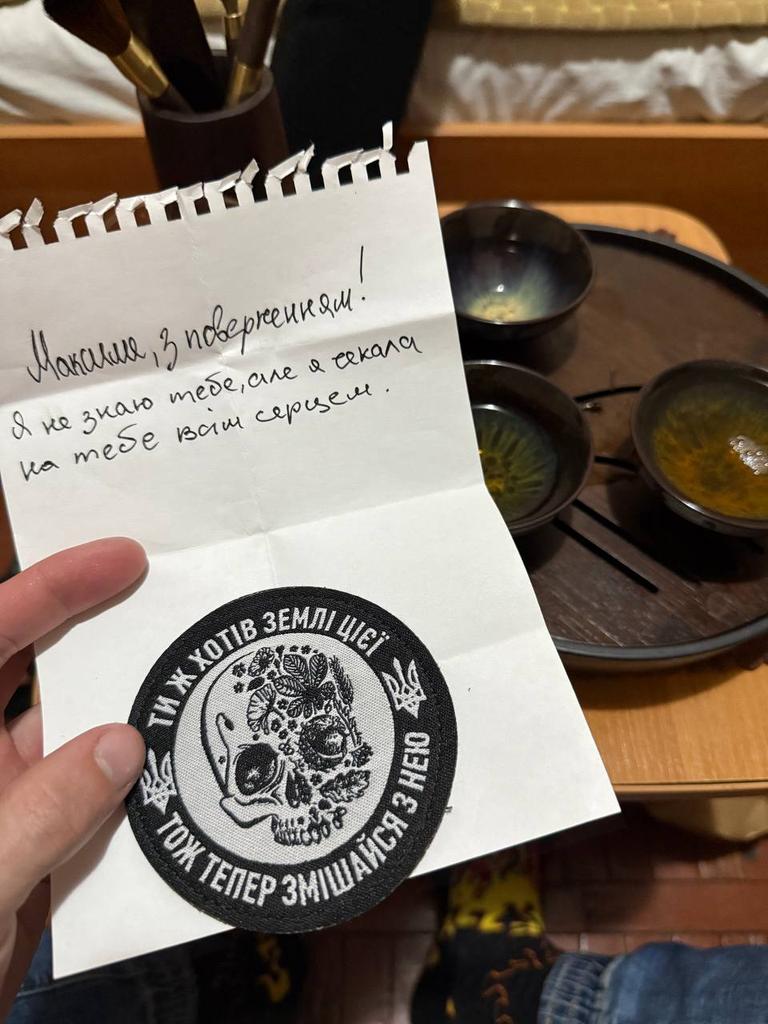 Максиме, з поверненням!
Я не знаю тебе, але я чекала
на тебе всім серцем.
ТИ Ж ХОТІВ ЗЕМЛІ ЦІЄЇ
ТОЖ ТЕПЕР ЗМІШАЙСЯ З НЕЮ